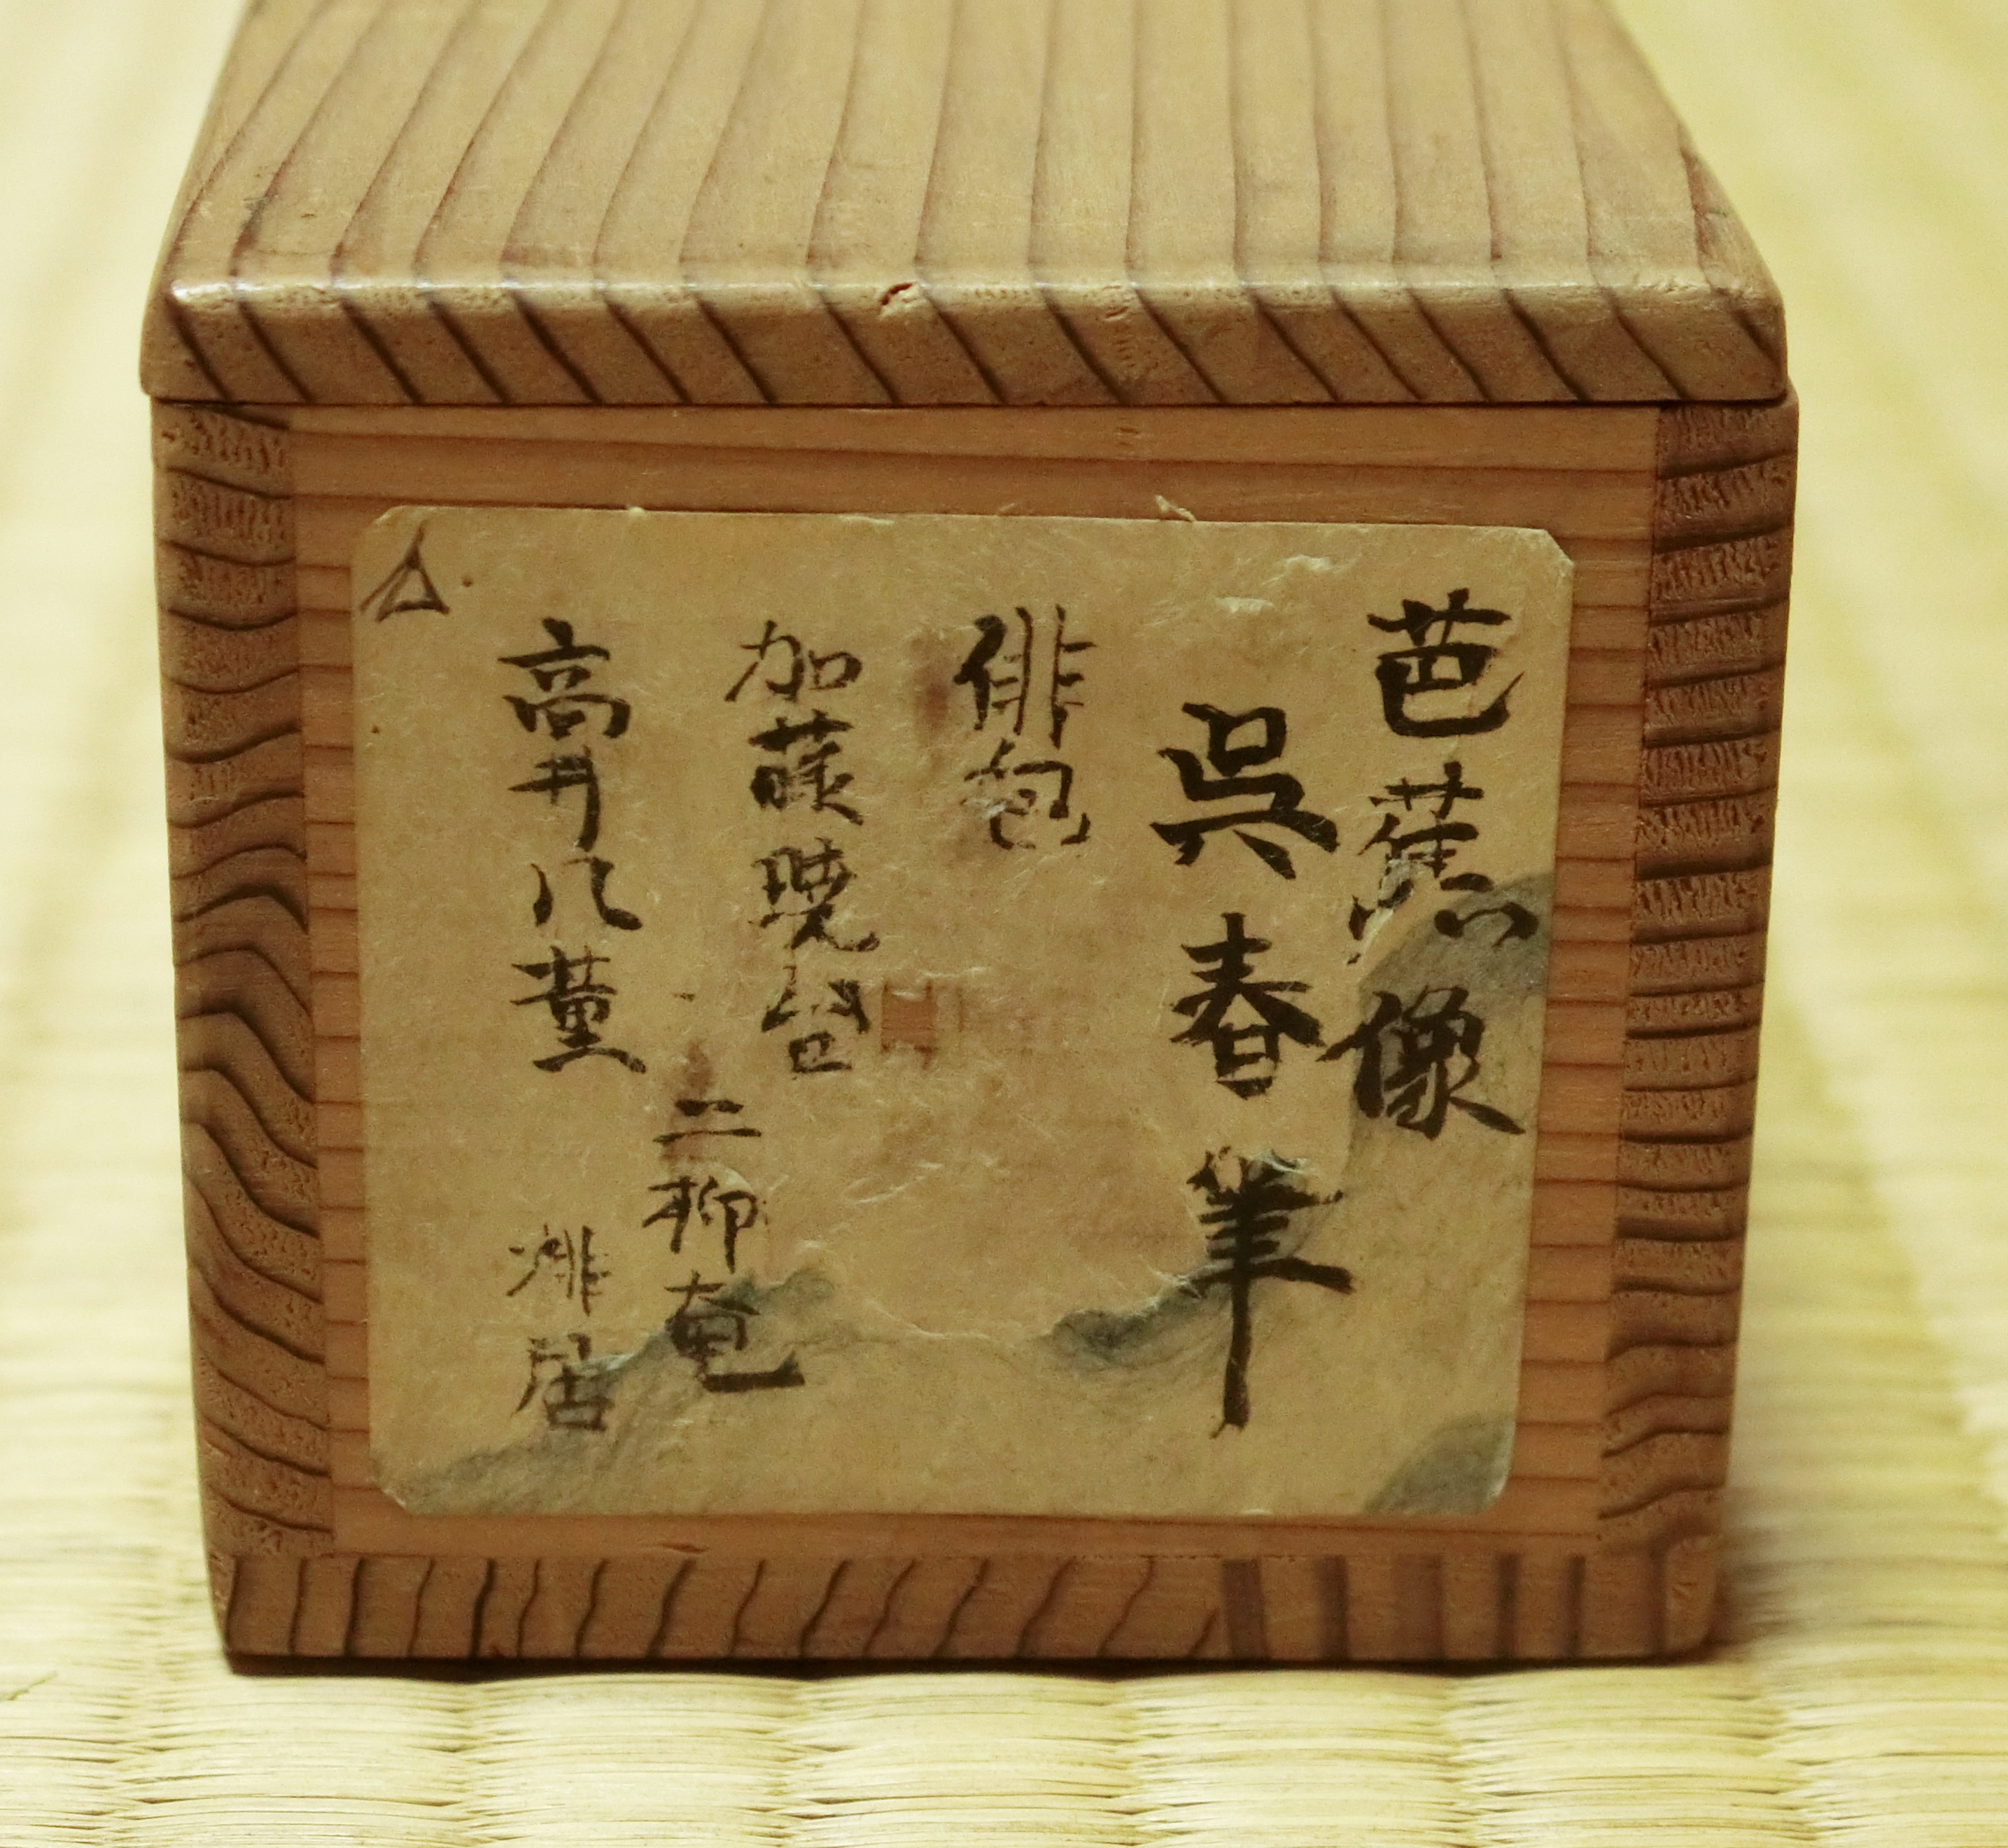 芭蕉像
呉春筆
俳句
加藤暁台
二柳庵
高井几董
俳居